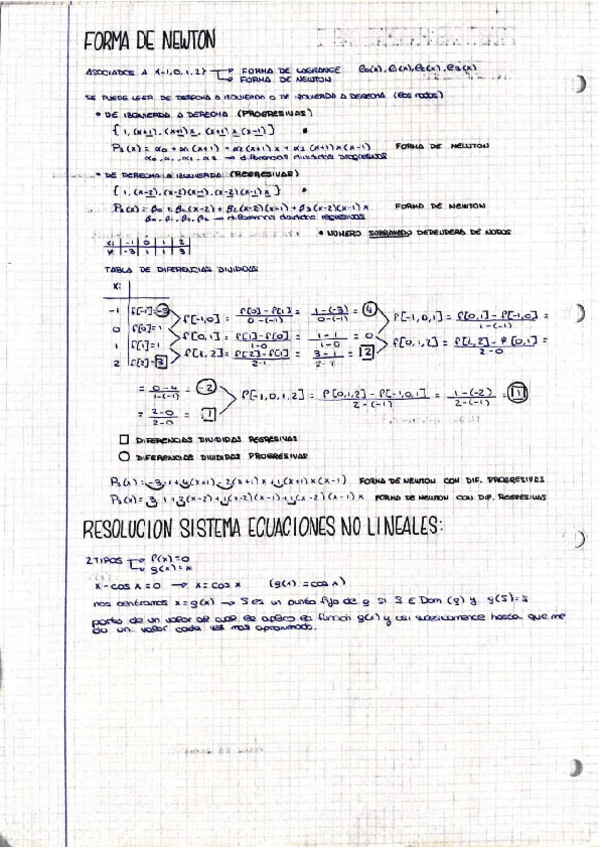 FORMA DE NEWTON
ASOCIADOS A {-1,0,1,2} → FORMA DE LAGRANGE ℓ0(x), ℓ1(x), ℓ2(x), ℓ3(x)
→ FORMA DE NEWTON
SE PUEDE LEER DE DERECHA A IZQUIERDA O DE IZQUIERDA A DERECHA (los nodos)
• DE IZQUIERDA A DERECHA (PROGRESIVAS)
{1, (x+1), (x+1)x, (x+1)x(x-1)}
P3(x) = α0 + α1(x+1) + α2(x+1)x + α3(x+1)x(x-1) FORMA DE NEWTON
α0, α1, α2 → diferencias divididas progresivas
• DE DERECHA A IZQUIERDA (REGRESIVAS)
{1, (x-2), (x-2)(x-1), (x-2)(x-1)x}
P3(x) = β0 + β1(x-2) + β2(x-2)(x-1) + β3(x-2)(x-1)x FORMA DE NEWTON
β0, β1, β2 → diferencias divididas regresivas
• NÚMERO SUMANDO DEPENDERÁ DE NODOS
xi | -1 | 0 | 1 | 2
yi | -3 | 1 | 1 | 3
TABLA DE DIFERENCIAS DIVIDIDAS
xi
-1 f[-1] = -3
0 f[0] = 1
1 f[1] = 1
2 f[2] = 3
f[-1,0] = = 1-(-3)/0-(-1) = 4
f[0,1] = f[1]-f[0]/1-0 = 1-1/1-0 = 0
f[1,2] = f[2]-f[1]/2-1 = 3-1/2-1 = 2
f[-1,0,1] = f[0,1]-f[-1,0]/1-(-1) =
f[0,1,2] = f[1,2]-f[0,1]/2-0 =
= 0-4/1-(-1) = -2
= 2-0/2-0 = 1
f[-1,0,1,2] = f[0,1,2]-f[-1,0,1]/2-(-1) = 1-(-2)/2-(-1) = 1
□ DIFERENCIAS DIVIDIDAS REGRESIVAS
○ DIFERENCIAS DIVIDIDAS PROGRESIVAS
P3(x) = -3·1+4(x+1)-2(x+1)x+1(x+1)x(x-1) FORMA DE NEWTON CON DIF. PROGRESIVAS
P3(x) = 3·1+2(x-2)+1(x-2)(x-1)+1(x-2)(x-1)x FORMA DE NEWTON CON DIF. REGRESIVAS
RESOLUCION SISTEMA ECUACIONES NO LINEALES:
2 TIPOS → f(x)=0
→ g(x)=x
x-cosx=0 → x=cosx (g(x)=cosx)
nos centramos x=g(x) → S es un punto fijo de g si S ∈ Dom(g) y g(S)=S
parto de un valor al cual le aplico la función g(x) y así sucesivamente hasta que me
da un valor cada vez más aproximado.